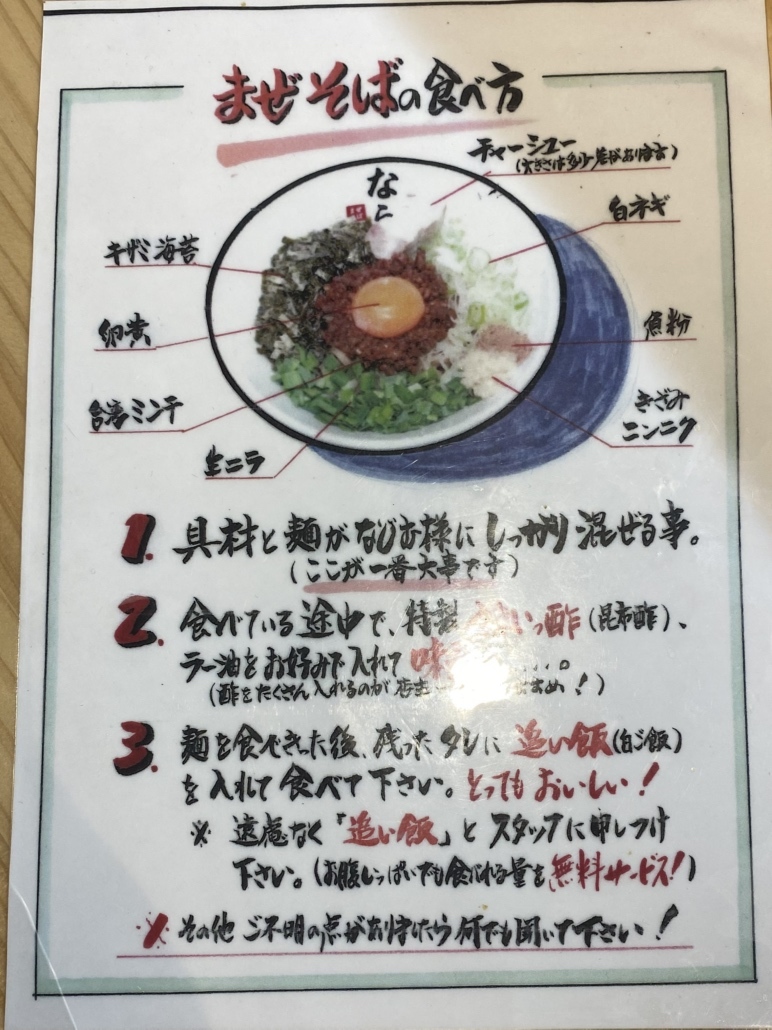 まぜそばの食べ方
チャーシュー
(大きさは多少差があります)
なら
白ネギ
キザミ海苔
魚粉
卵黄
台湾ミンチ
きざみ
ニンニク
生ニラ
1. 具材と麺がなじむ様にしっかり混ぜる事。
(ここが一番大事です)
2. 食べている途中で、特製 っ酢(昆布酢)、
ラー油をお好みで入れて味
(酢をたくさん入れるのが店主 すすめ!)
3. 麺を食べきった後、残ったタレに追い飯(白ご飯)
を入れて食べて下さい。とってもおいしい!
※ 遠慮なく「追い飯」とスタッフに申しつけ
下さい。(お腹いっぱいでも食べれる量を無料サービス!)
その他ご不明の点がありましたら何でも聞いて下さい!